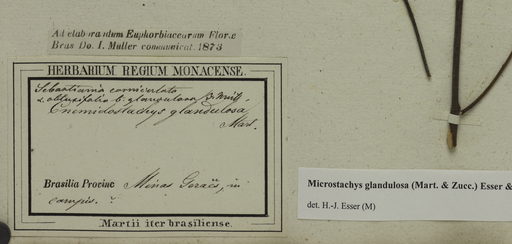 Ad elaborandum Euphorbiacearum Florae
Bras Do. I. Muller comunicat. 1873
HERBARIUM REGIUM MONACENSE.
Sebastiania corniculata
α. obtusifolia b. glandulosa
Cnemidostachys glandulosa
Mart.
Brasilia Provinc Minas Geraës, in
campis.
Martii iter brasiliense.
Microstachys glandulosa (Mart. & Zucc.) Esser &
det. H.-J. Esser (M)